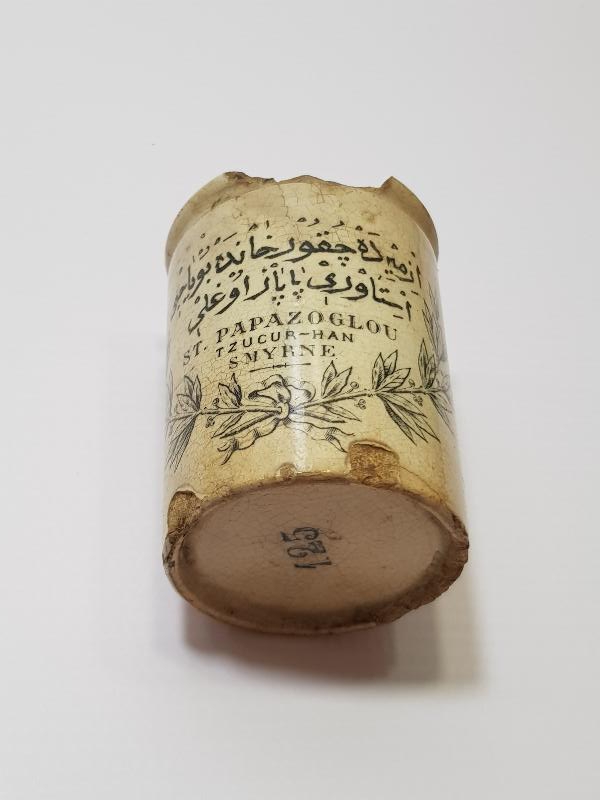 ازمیرده چقور خاننده بویاجی
استاوری پاپازاوغلی
ST. PAPAZOGLOU
TZUCUR-HAN
SMYRNE
125